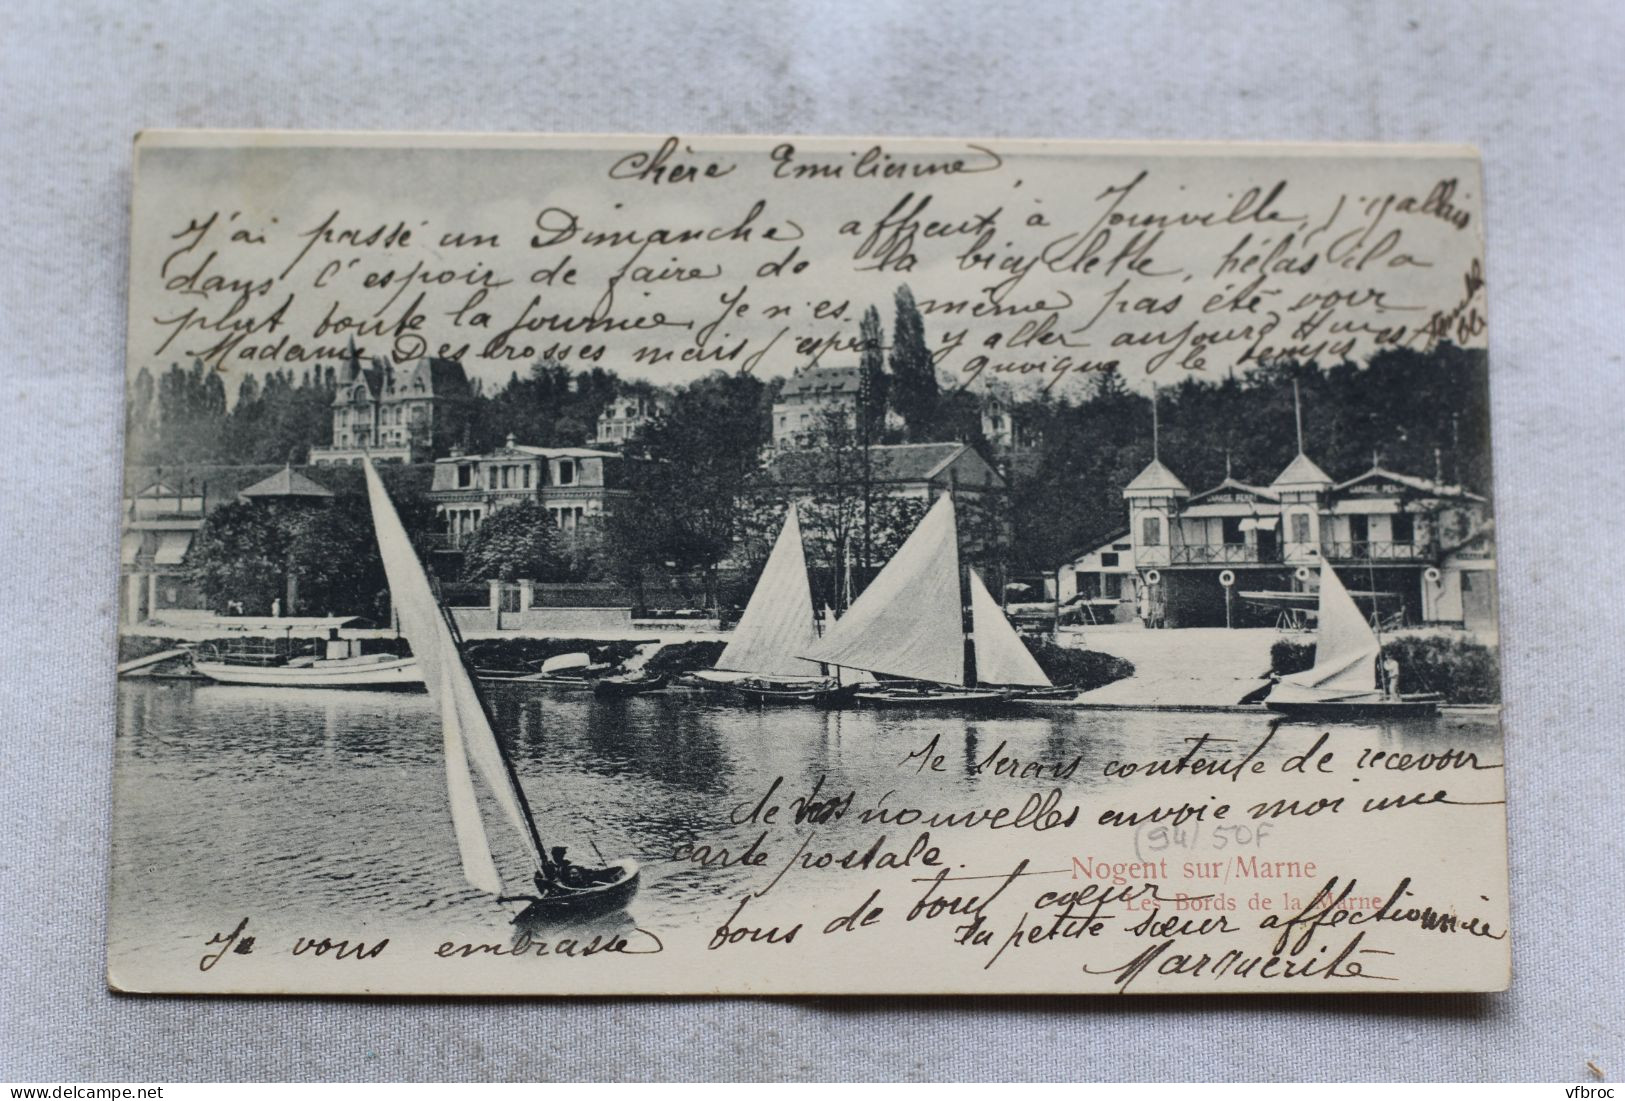 Chère Emilienne,
J'ai passé un Dimanche affreux à Joinville, j'y allais
dans l'espoir de faire de la bicyclette, hélas il a
plut toute la journée, Je n'es même pas été voir
Madame Descrosses mais j'espère y aller aujourd'hui
quoique le temps est
GARAGE
Je serais contente de recevoir
de vos nouvelles envoie moi une
carte postale.
(94/50F
Nogent sur/Marne
Les Bords de la Marne
Je vous embrasse tous de tout cœur
Ta petite sœur affectionnée
Marguerite
vfbroc